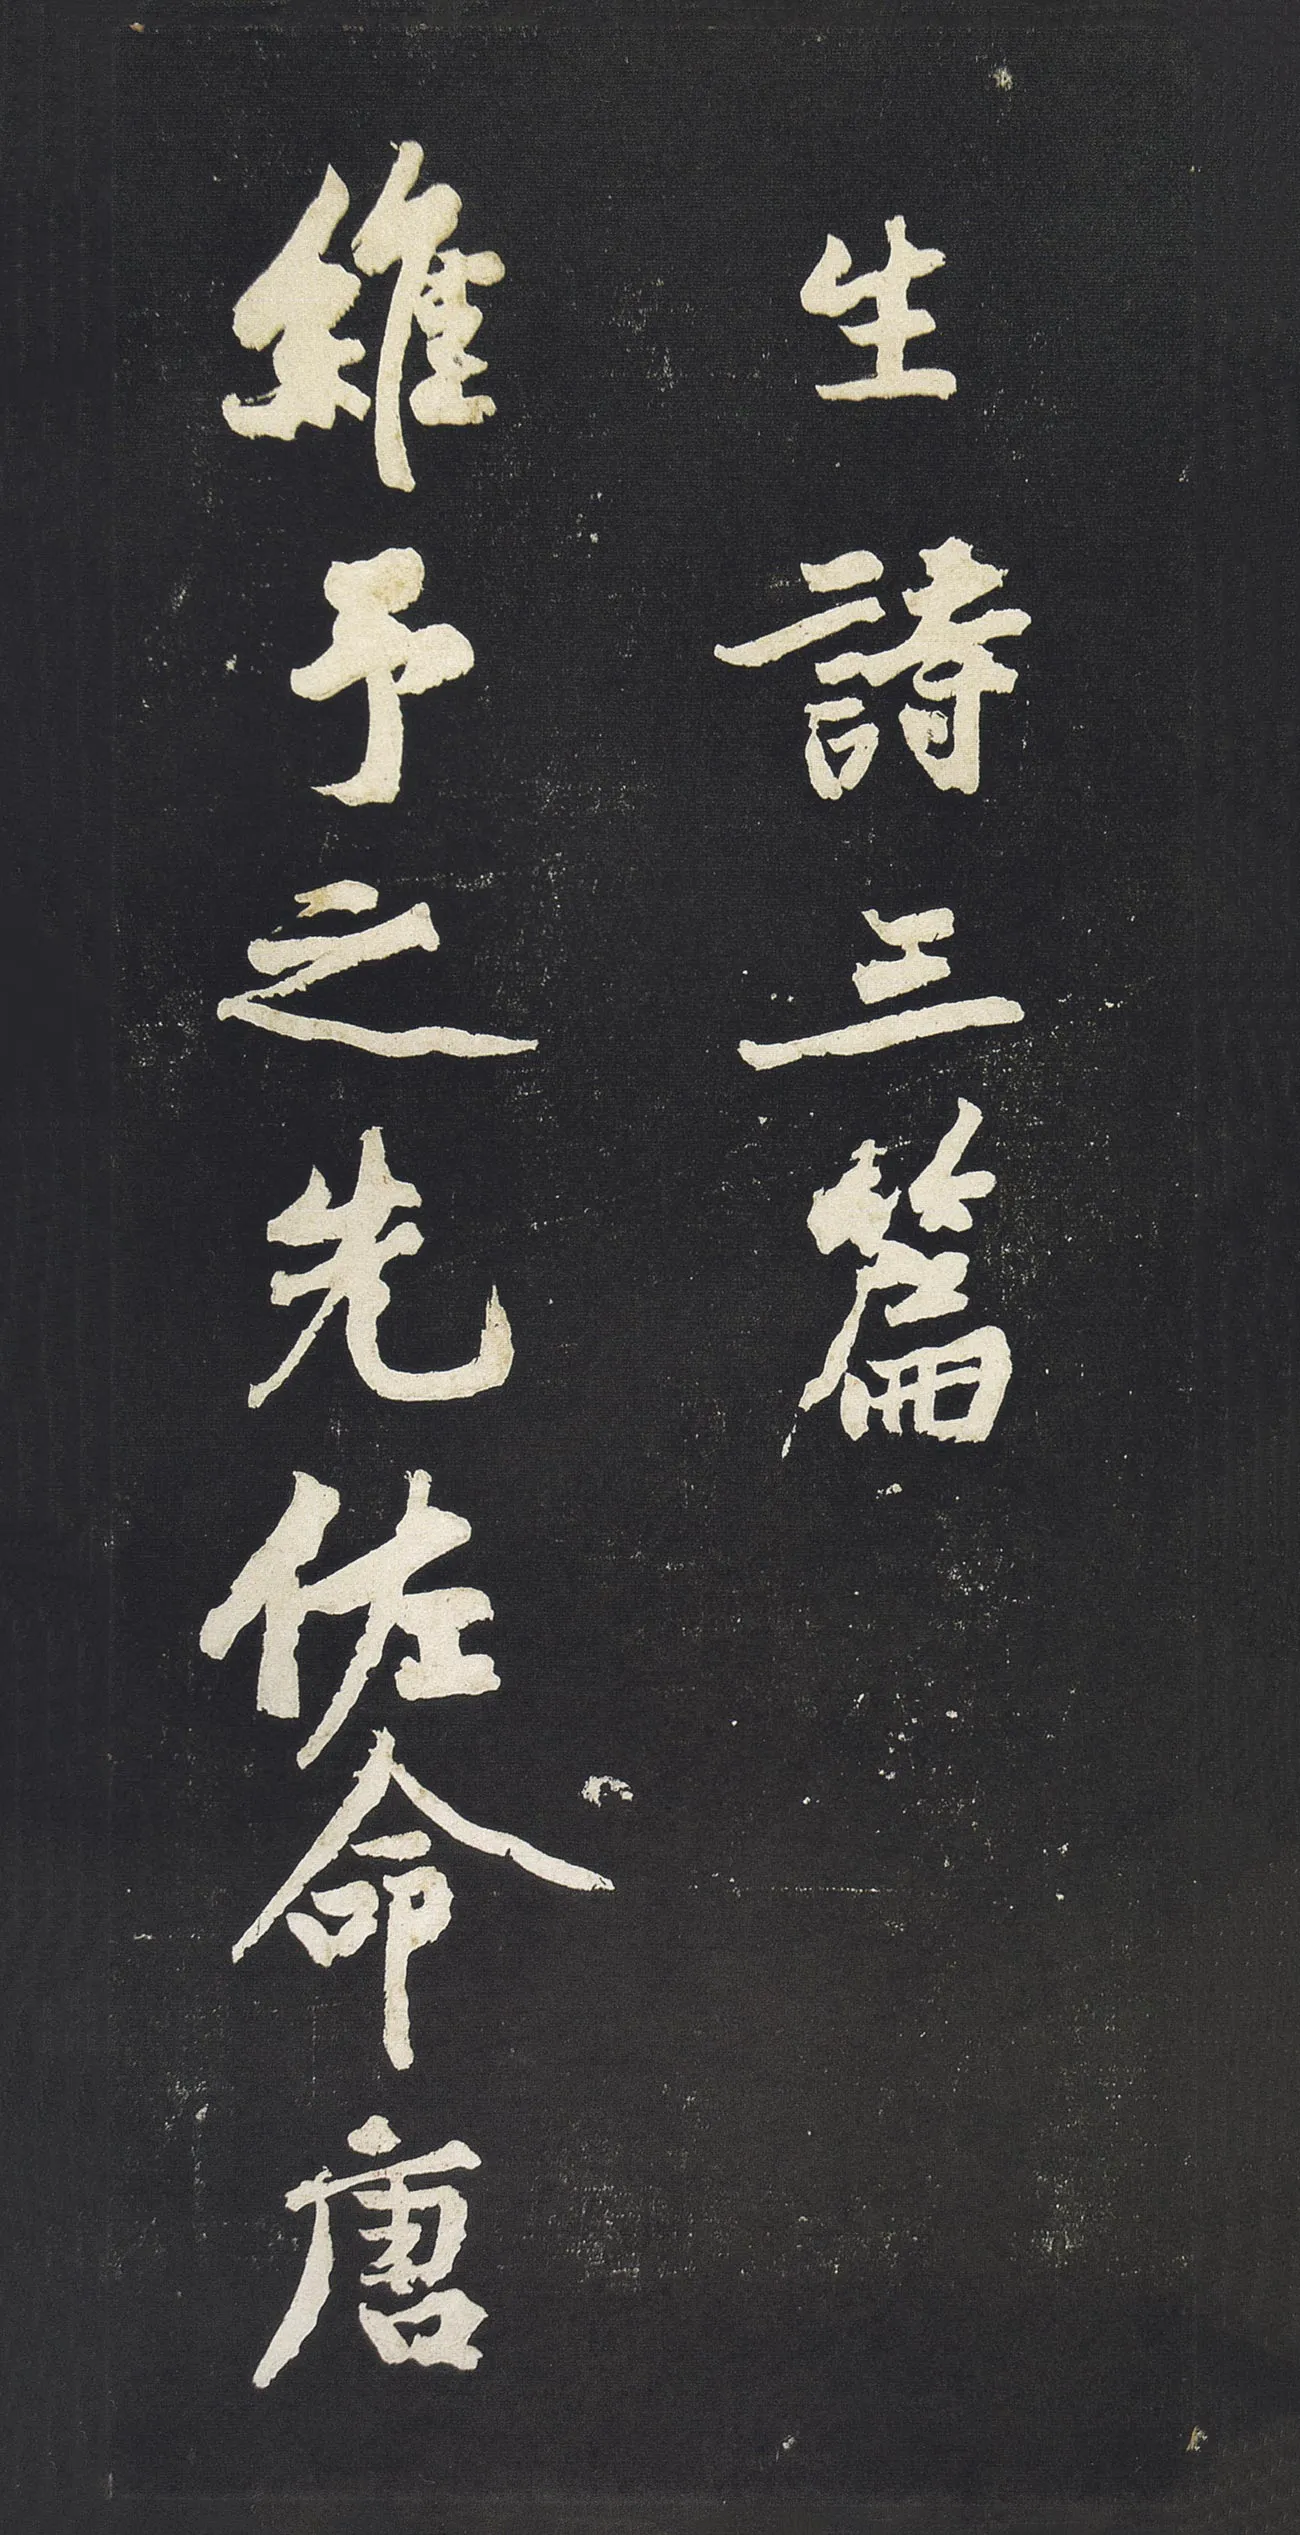 生詩三篇
維予之先佐命唐